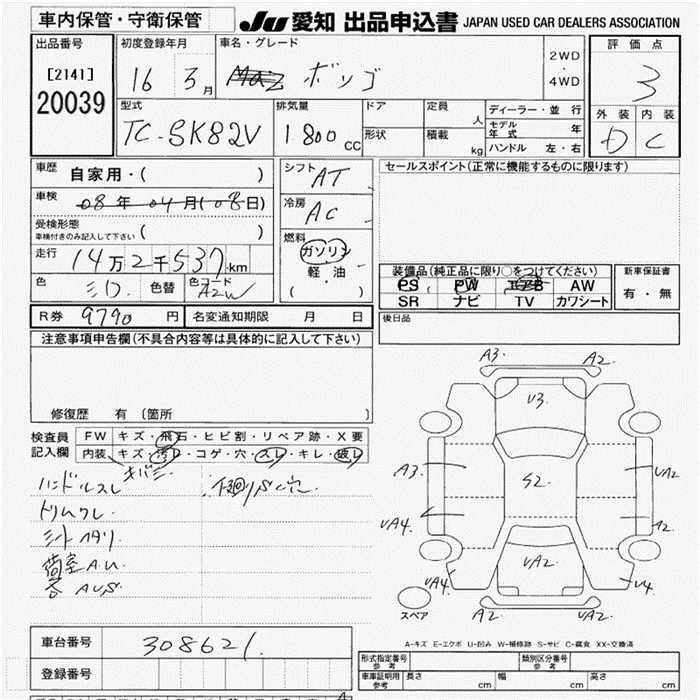 車内保管・守衛保管
JU 愛知 出品申込書 JAPAN USED CAR DEALERS ASSOCIATION
出品番号
[2141]
20039
初度登録年月
16 3月
車名・グレード
ボンゴ
2WD
・
4WD
評価点
3
外装 内装
D C
型式
TC-SK82V
排気量
1800cc
ドア
形状
定員 人
積載 kg
ディーラー・並行
モデル年式 年
ハンドル 左・右
車歴 自家用・( )
車検 08年 04月(08日)
受検形態
車検付きのみ記入して下さい ( )
走行 14万2千537km
色 シロ 色替 色コード A2W
シフト AT
冷房 AC
燃料
ガソリン
軽油
・
( )
セールスポイント(正常に機能するものに限ります)
装備品(純正品に限り○をつけてください)
PS PW エアB AW
SR ナビ TV カワシート
新車保証書
有・無
R券 9790円 名変通知期限 月 日
後日品
注意事項申告欄(不具合内容等は具体的に記入して下さい)
修復歴 有 〔箇所 〕
検査員
記入欄
FW キズ・飛石・ヒビ割・リペア跡・X要
内装 キズ・汚レ・コゲ・穴・スレ・キレ・破レ
ハンドルスレ
下廻りS穴
荷室A.U.
各AUS.
A3. A2.
U3.
A3. S2. UA2
UA4. A2.
UA2
UA4 U4.
スペア A2 UA2.
A-キズ E-エクボ U-凹み W-補修跡 S-サビ C-腐食 XX-交換済
車台番号 308621
登録番号
形式指定番号 参考
類別区分番号 参考
車庫証明用 参考
長さ cm 幅 cm 高さ cm